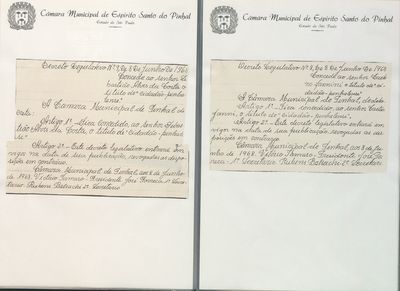 Câmara Municipal de Espírito Santo do Pinhal
Estado de São Paulo
Decreto Legislativo Nº 3, de 8 de Junho de 1968
Concede ao senhor
Batista Alves da Costa o
título de "cidadão-pinha-
lense"
A Câmara Municipal de Pinhal de-
creta:
Artigo 1º - Fica concedido, ao senhor
Alves da Costa, o título de "cidadão-pinha-
lense"
Artigo 2º - Este decreto legislativo entrará em
vigor na data de sua publicação, revogadas as dispo-
sições em contrário.
Câmara Municipal de Pinhal, aos 8 de Ju-
nho de 1968. - Presidente José
Rubem 2º Secretário
Câmara Municipal de Espírito Santo do Pinhal
Estado de São Paulo
Decreto Legislativo Nº de 8 de Junho de 1968
Concede ao senhor
o título de "ci-
dadão-pinhalense"
A Câmara Municipal de Pinhal, decreta:
Artigo 1º - Fica concedido, ao senhor
o título de "cidadão-pinhalense"
Artigo 2º - Este decreto legislativo entrará em
vigor na data de sua publicação, revogadas as dis-
posições em contrário.
Câmara Municipal de Pinhal, aos 8 de Ju-
nho de 1968. - Presidente José
- 1º Secretário Rubem - 2º Secretário